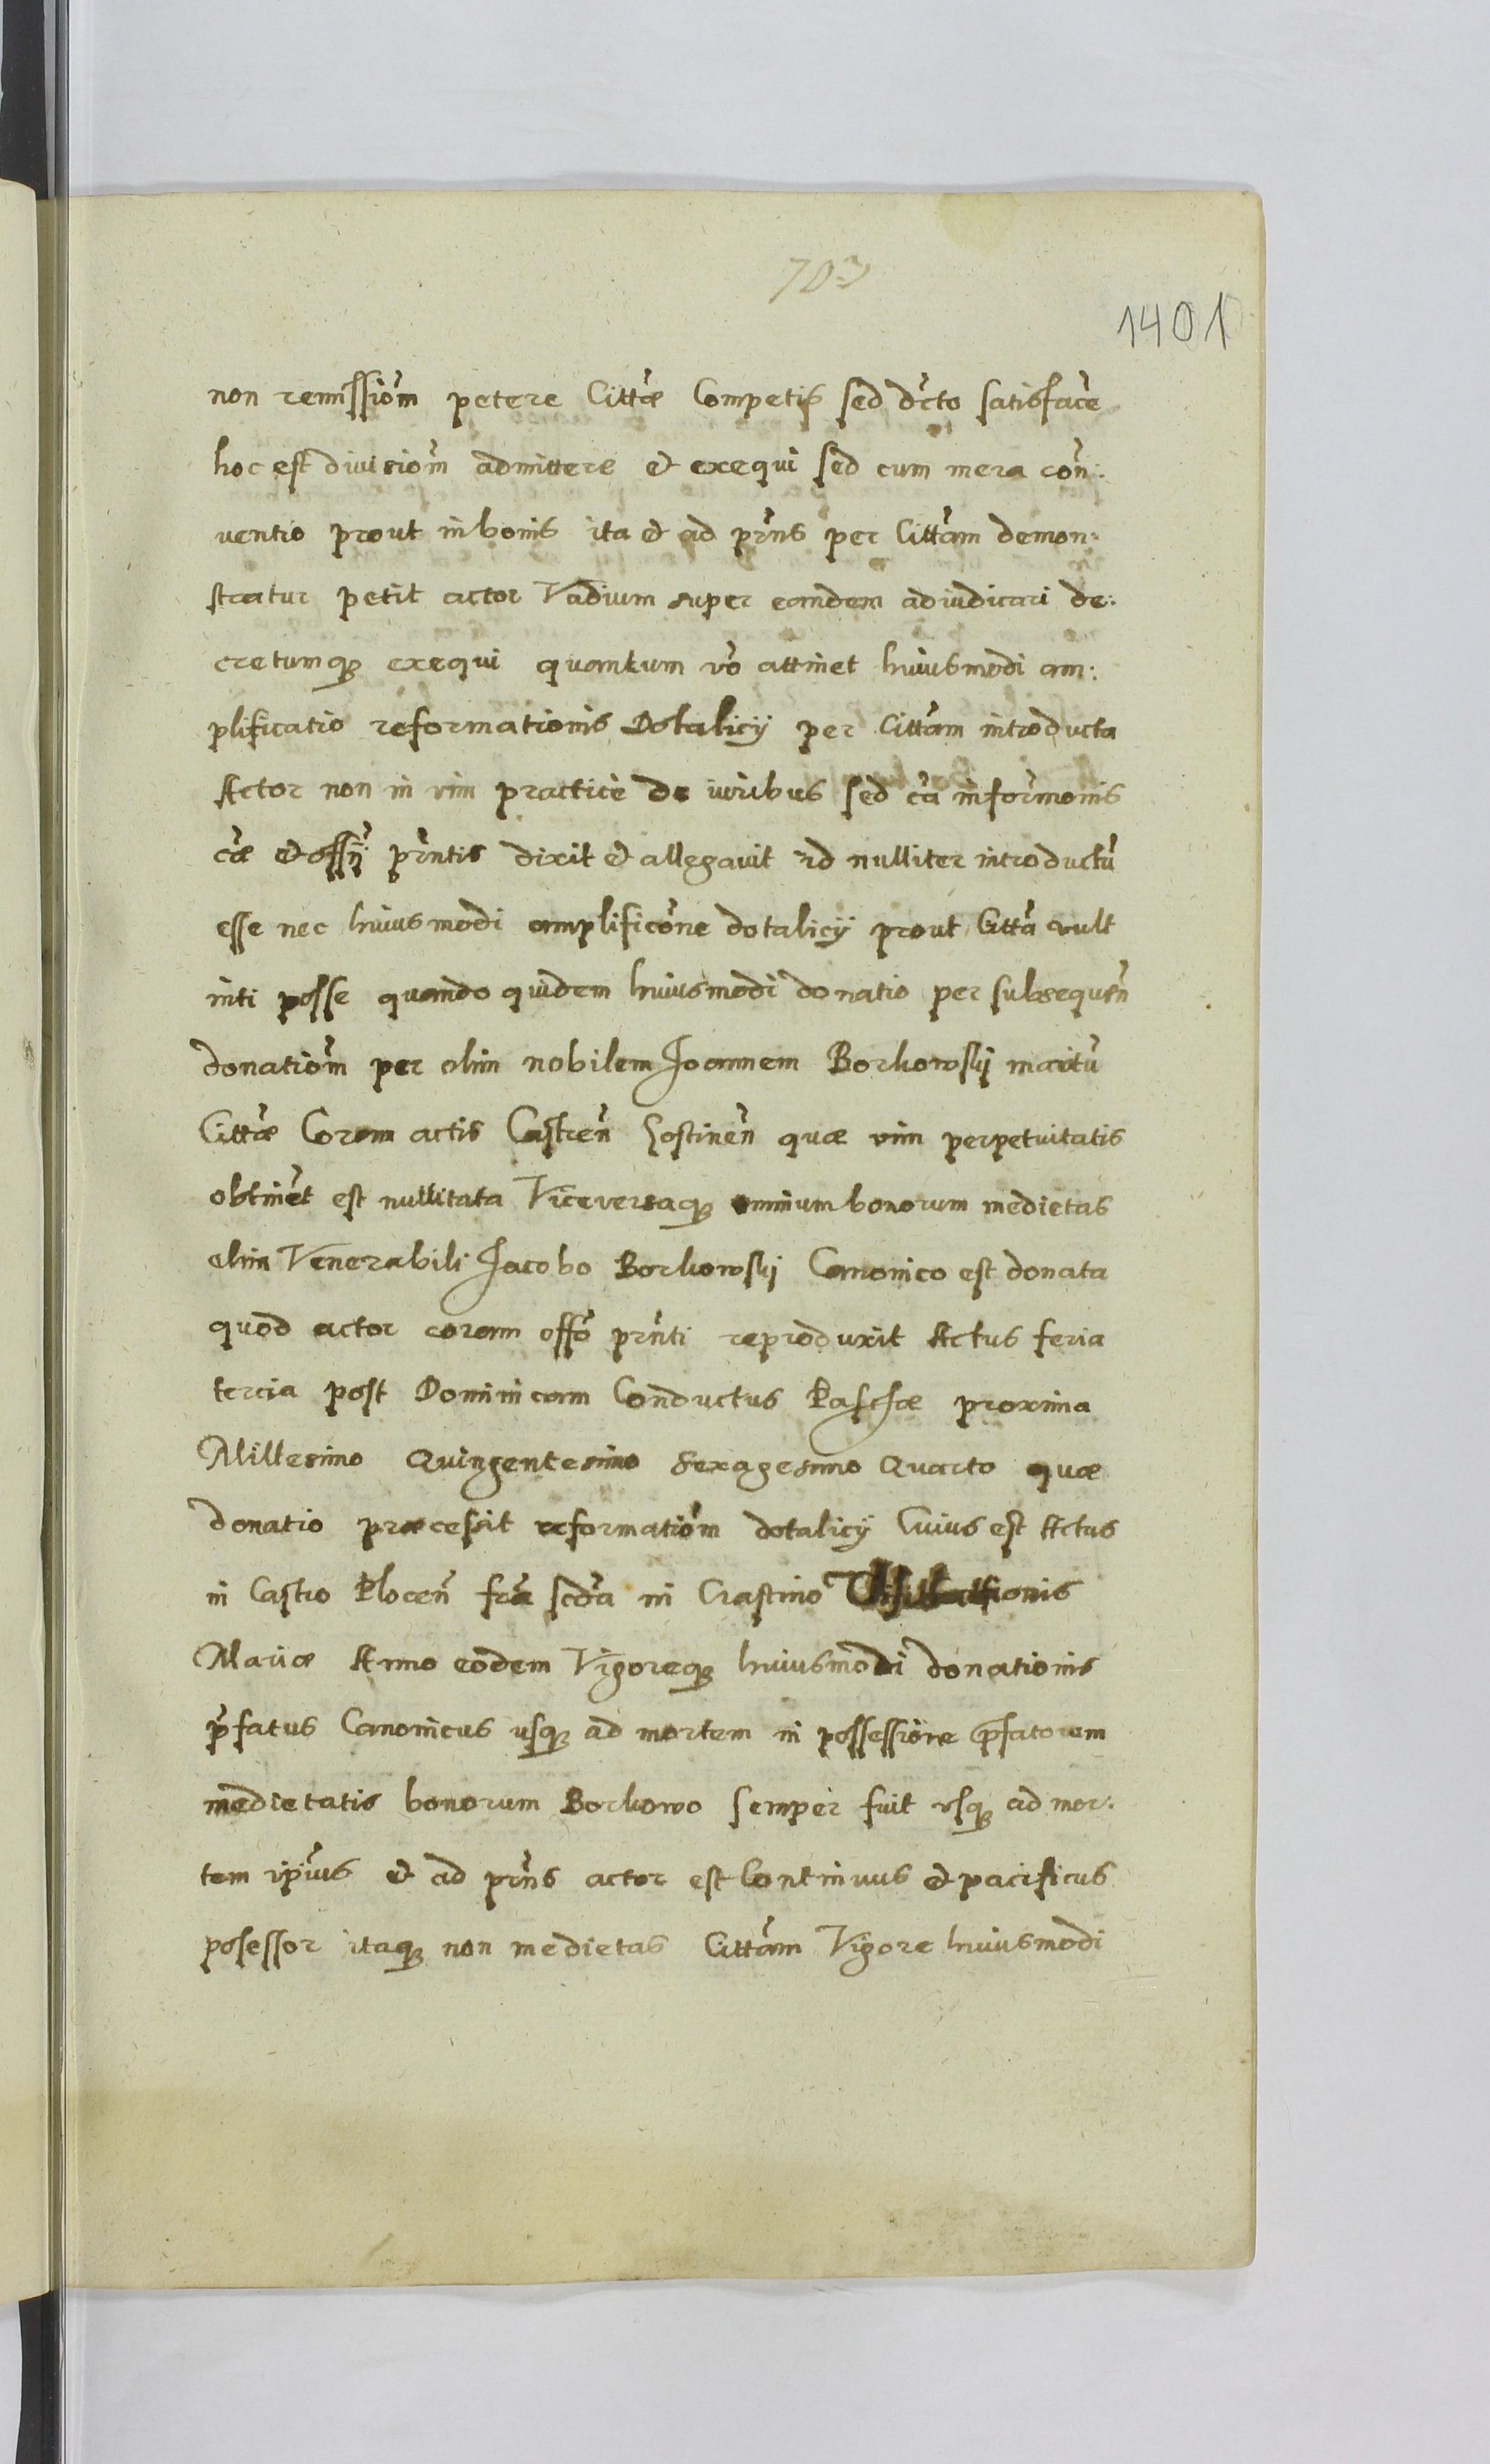 703
1401
non remissiõm petere Cittæ Competiß sed dcto satisfacẽ
hoc est diuisiõm admittere et exequi sed cum mera con:
uentio prout in bonis ita et ad prns per Cittam demon:
stratur petit actor Vadium super eandem adiudicari de:
cretumq exequi quantum vo attinet huiusmodi am:
plificatio reformationis Dotalicÿ per Cittam introducta
Actor non in vim practicè de iuribus sed ca informonis
cæ et offÿ prntis dixit et allegauit id nulliter introductũ
esse nec huiusmodi amplificõne dotalicÿ prout Citta vult
inti posse quando quidem huiusmodi donatio per subsequẽn
donatiõm per olim nobilem Joannem Borkowskj maritũ
Cittæ Coram actis Castren Gostinen quæ vim perpetuitatis
obtinet est nullitata Viceversaq omnium bonorum medietas
olim Venerabili Jacobo Borkowskj Canonico est donata
quod actor coram offo prnti reproduxit Actus feria
tercia post Dominicam Conductus Paschæ proxima
Millesimo Quingentesimo Sexagesimo Quarto quæ
donatio præcessit reformatiõm dotalicÿ Cuius est Actus
in Castro Plocen fra scda in Crastino Visitationis
Mariæ Anno eodem Vigoreq huiusmodi donationis
pfatus Canonicus vsq ad mortem in possessione pfatorum
medietatis bonorum Borkowo semper fuit vsq ad mor:
tem ipius et ad prns actor est Continuus et pacificus
posessor itaq non medietas Cittam Vigore huiusmodi